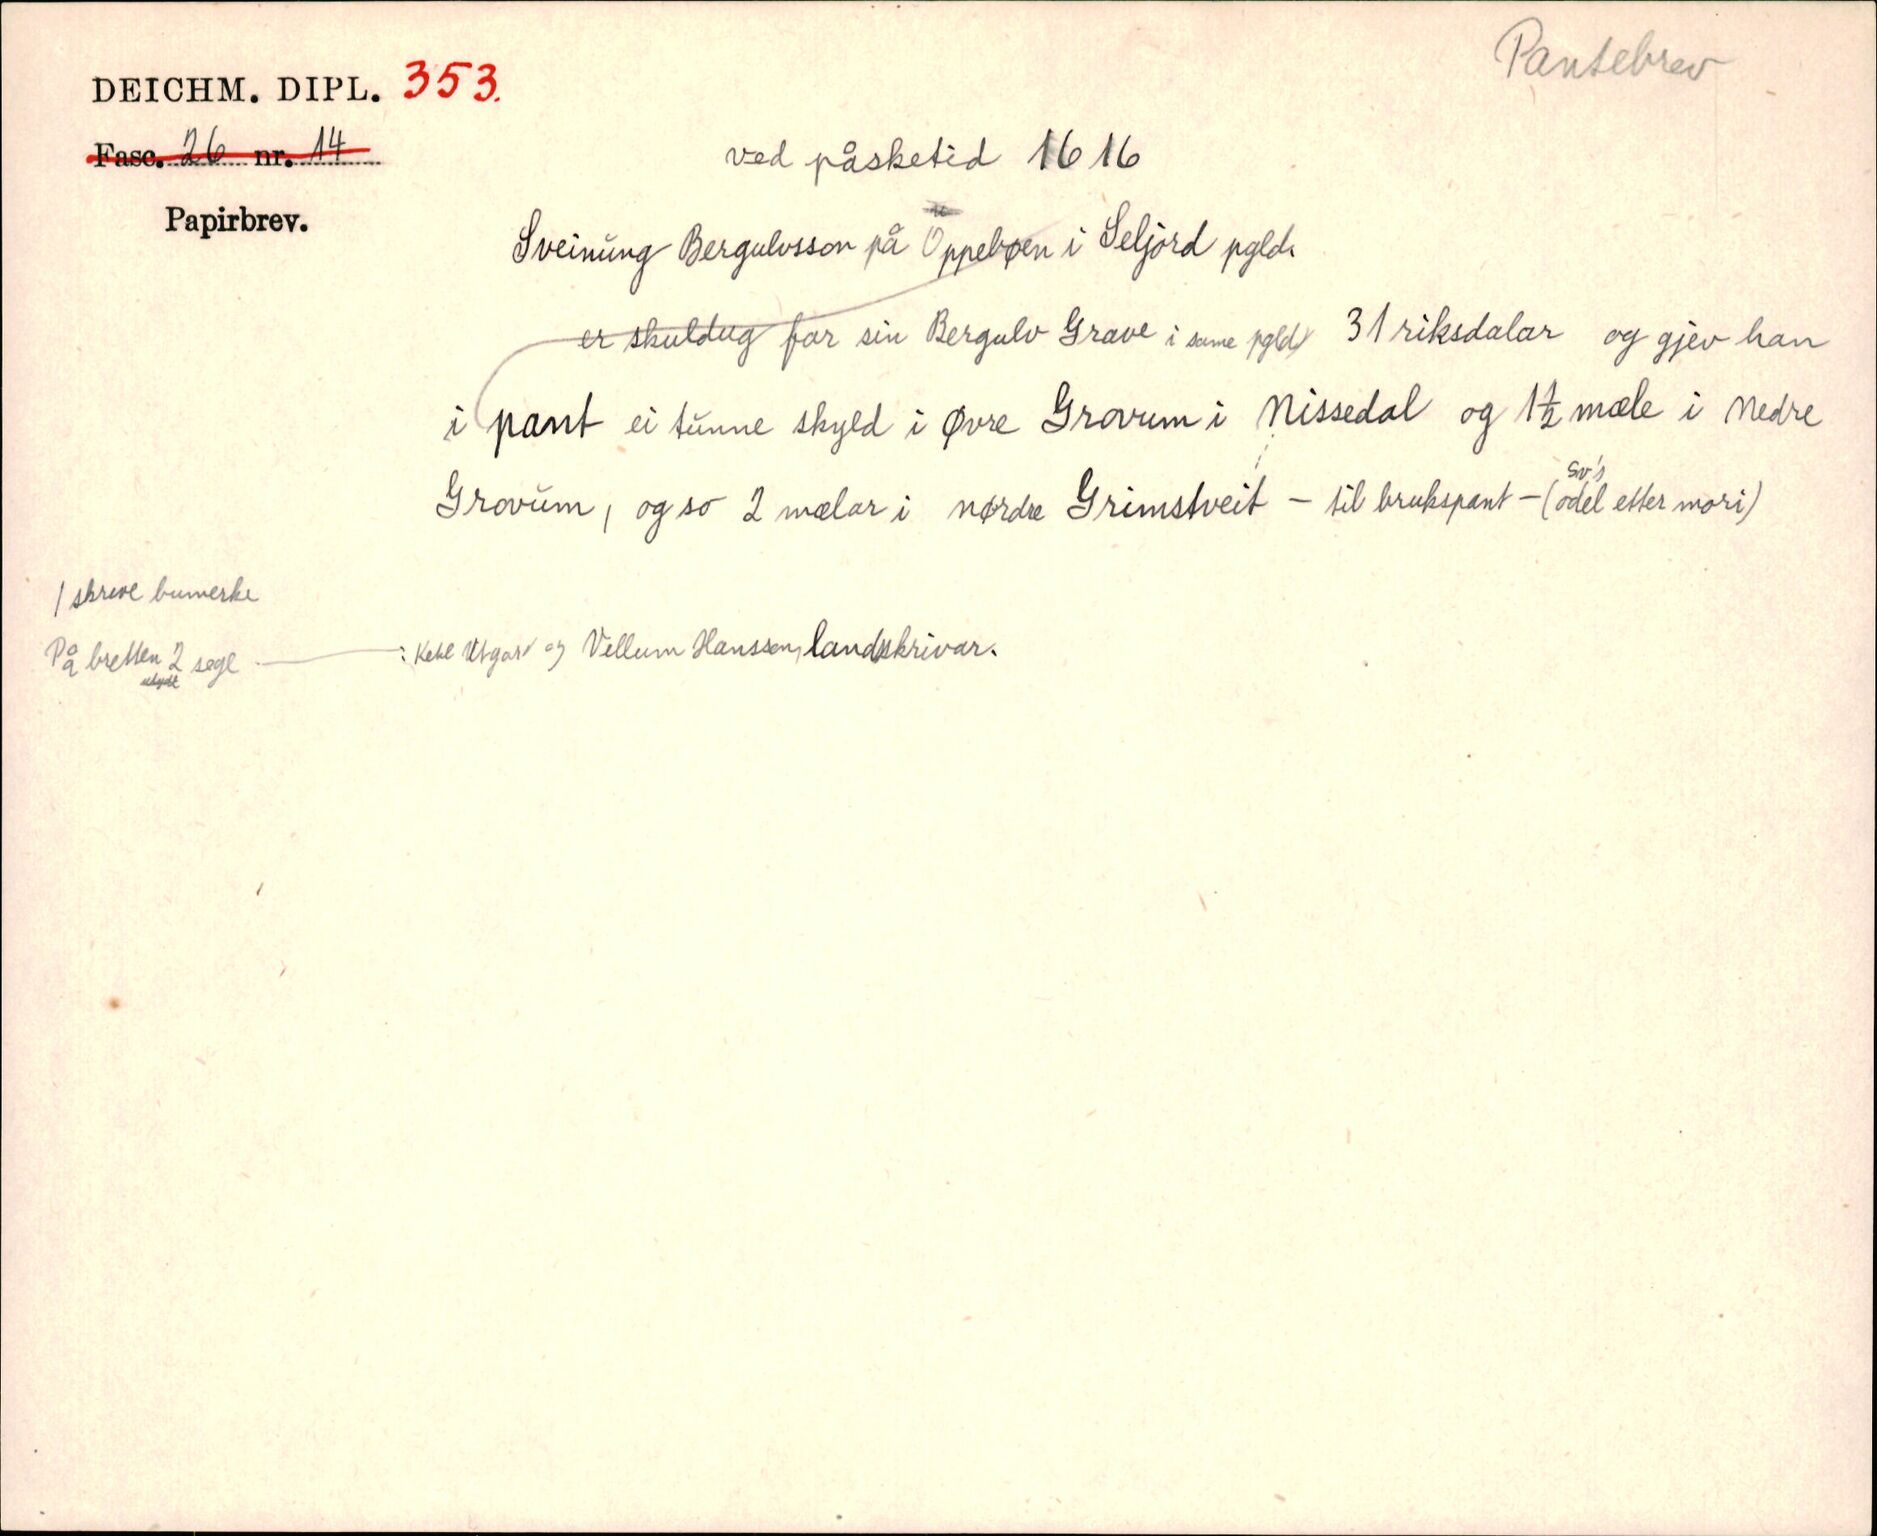 Pantebrev
DEICHM. DIPL. 353.
Fasc. 26 nr. 14
Papirbrev.
ved påsketid 1616
Sveinŭng Bergulvsson på Oppebøen i Seljord pgld.
er skuldug far sin Bergulv Grave i same pgld, 31 riksdalar og gjev han
i pant ei tŭnne skyld i Øvre Grovum i Nissedal og 1 1/2 mæle i Nedre
Grovŭm, og so 2 mælar i nørdre Grimstveit – til brukspant – (Sv's odel etter mori)
1 skreve bumerke
På bretten 2 segl : Ketil Utgard og Vellum Hanssen, landskrivar.
utydt